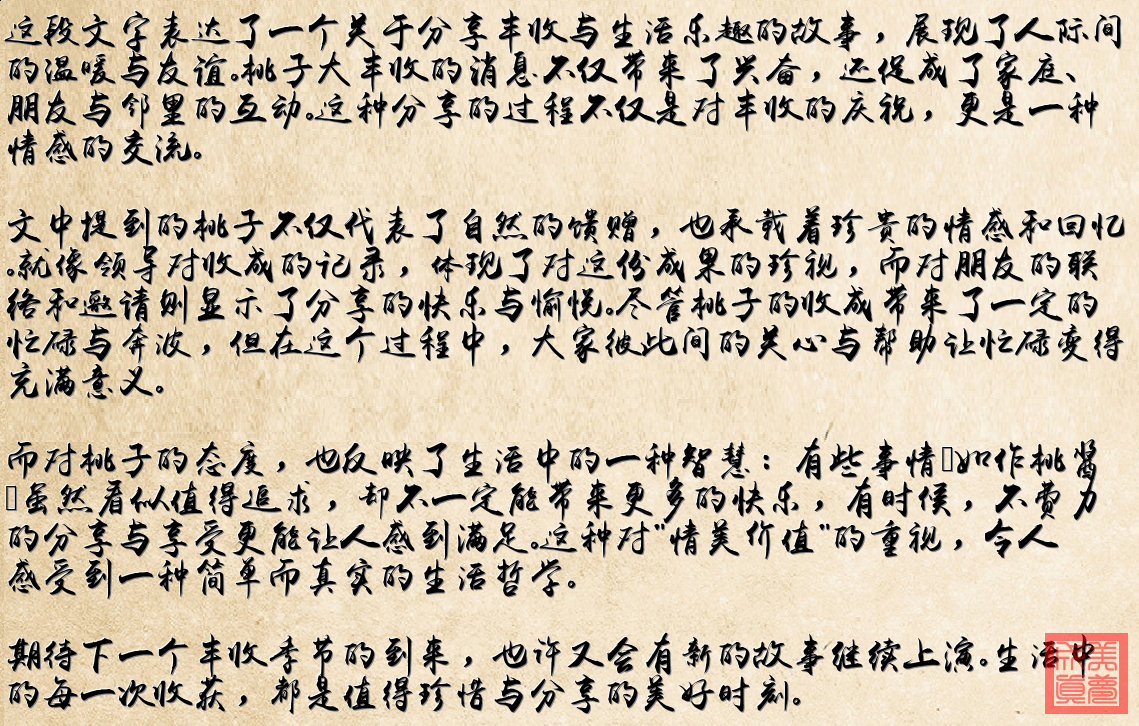 这段文字表达了一个关于分享丰收与生活乐趣的故事，展现了人际间
的温暖与友谊。桃子大丰收的消息不仅带来了兴奋，还促成了家庭、
朋友与邻里的互动。这种分享的过程不仅是对丰收的庆祝，更是一种
情感的交流。
文中提到的桃子不仅代表了自然的馈赠，也承载着珍贵的情感和回忆
。就像领导对收成的记录，体现了对这份成果的珍视，而对朋友的联
络和邀请则显示了分享的快乐与愉悦。尽管桃子的收成带来了一定的
忙碌与奔波，但在这个过程中，大家彼此间的关心与帮助让忙碌变得
充满意义。
而对桃子的态度，也反映了生活中的一种智慧：有些事情如作桃酱
虽然看似值得追求，却不一定能带来更多的快乐，有时候，不费力
的分享与享受更能让人感到满足。这种对"情美价值"的重视，令人
感受到一种简单而真实的生活哲学。
期待下一个丰收季节的到来，也许又会有新的故事继续上演。生活中
的每一次收获，都是值得珍惜与分享的美好时刻。